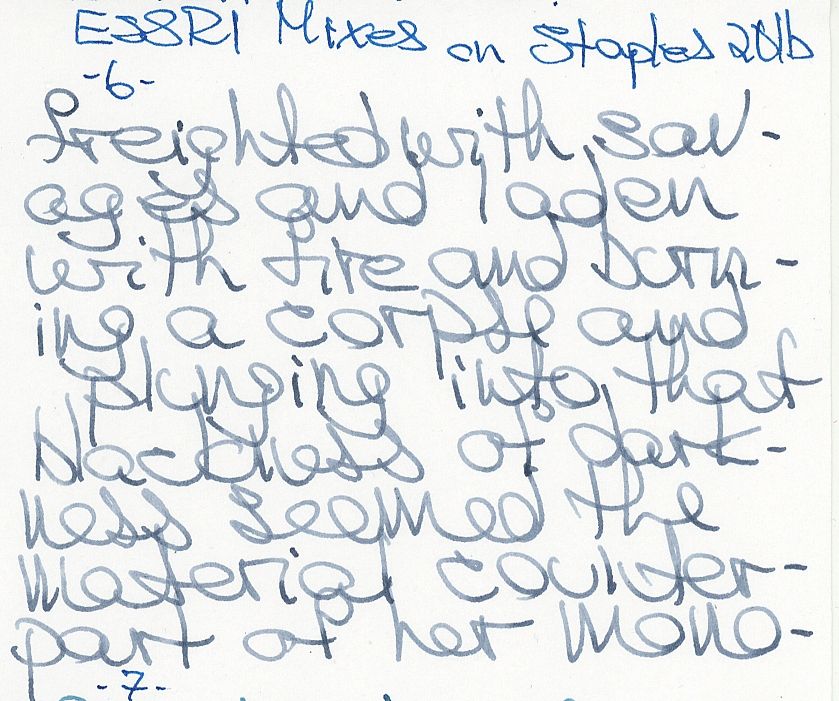 ESSRI Mixes on Staples 2016
-6-
freighted with sav-
ages and laden
with fire and burn-
ing a corpse and
plunging into that
blackness of dark-
ness seemed the
material counter-
part of her mono-
-7-